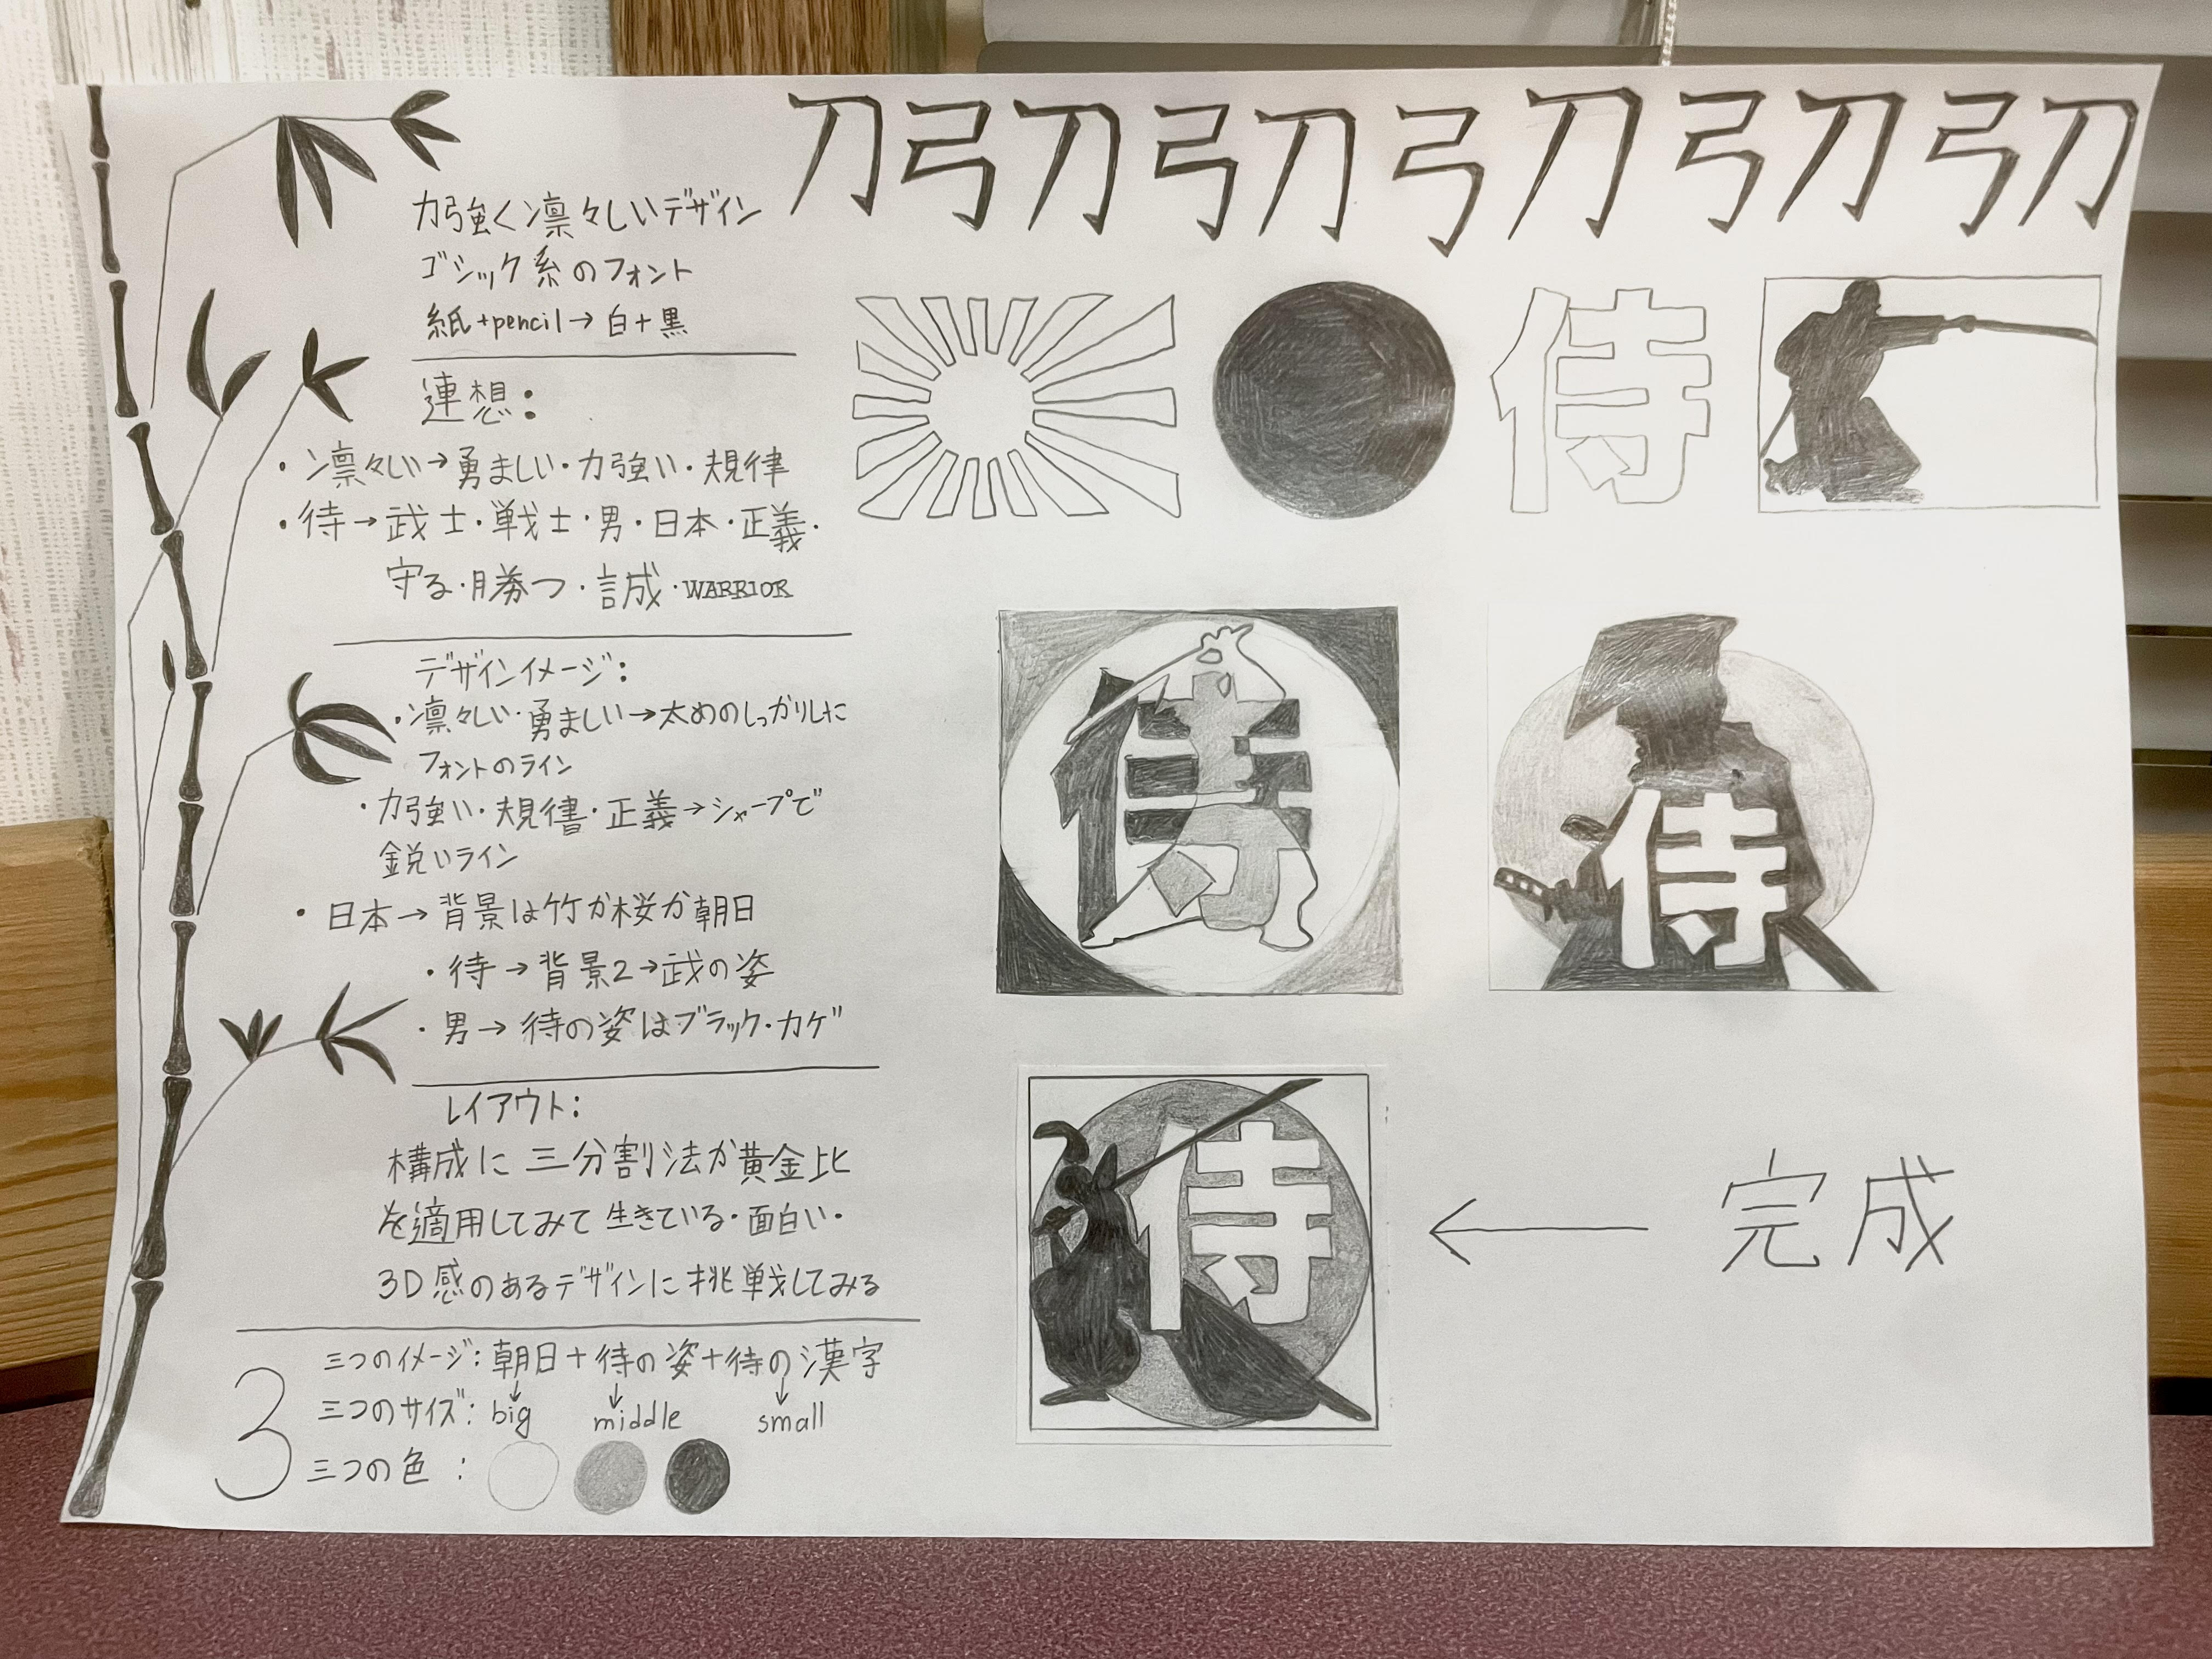 刀弓刀弓刀弓刀弓刀弓刀
力強く凛々しいデザイン
ゴシック系のフォント
紙+pencil→白+黒
連想:
・凛々しい→勇ましい・力強い・規律
・待→武士・戦士・男・日本・正義・
守る・勝つ・誠・WARRIOR
デザインイメージ:
・凛々しい・勇ましい→太めのしっかりした
フォントのライン
・力強い・規律・正義→シャープで
鋭いライン
・日本→背景は竹か桜か朝日
・待→背景2→武の姿
・男→待の姿はブラック・カゲ
レイアウト:
構成に三分割法か黄金比
を適用してみて生きている・面白い・
3D感のあるデザインに挑戦してみる
3
三つのイメージ:朝日+待の姿+待の漢字
↓ ↓ ↓
三つのサイズ:big middle small
三つの色:
侍
侍
侍
侍
← 完成